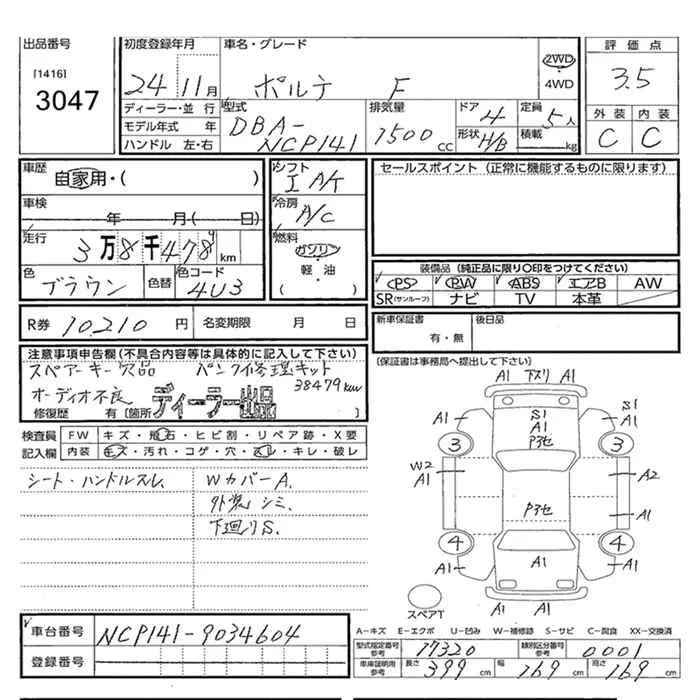 出品番号 初度登録年月 車名・グレード 評価点
[1416]
3047
24 11月 ポルテ F 2WD 4WD 3.5
ディーラー・並行 型式 排気量 ドア 4 定員 5人
モデル年式 年 DBA- 1500cc 形状 H/B 積載 kg 外装 内装
ハンドル 左・右 NCP141 C C
車歴 自家用・( ) シフト I A/K
セールスポイント (正常に機能するものに限ります)
車検 年 月( 日) 冷房 A/C
走行 3万8千478 km 燃料 ガソリン
軽・油
( )
色 ブラウン 色替 色コード 4U3
装備品 (純正品に限り〇印をつけてください)
PS PW ABS エアB AW
SR(サンルーフ) ナビ TV 本革
R券 10,210 円 名変期限 月 日
新車保証書 有・無 後日品
(保証書は事務局へ提出して下さい)
注意事項申告欄(不具合内容等は具体的に記入して下さい)
スペアーキー欠品 パンク修理キット
38479km
オーディオ不良 ディーラー出品
修復歴 有〔箇所 〕
検査員 FW キズ・飛石・ヒビ割・リペア跡・X要
記入欄 内装 キズ・汚れ・コゲ・穴・スレ・キレ・破レ
シート・ハンドルスレ WカバーA.
外装シミ.
下廻りS.
A1 下スリ A1
A1 S1 A1 P3セ S1 A1
3 3
W2 A1 A2
P3セ A1
4 4
A1 A1 A1
A1 A1
スペアT
A-キズ E-エクボ U-凹み W-補修跡 S-サビ C-腐食 XX-交換済
車台番号 NCP141-9034604
登録番号
型式指定番号 参考 17320 類別区分番号 参考 0001
車庫証明用 参考 長さ 399 cm 幅 169 cm 高さ 169 cm